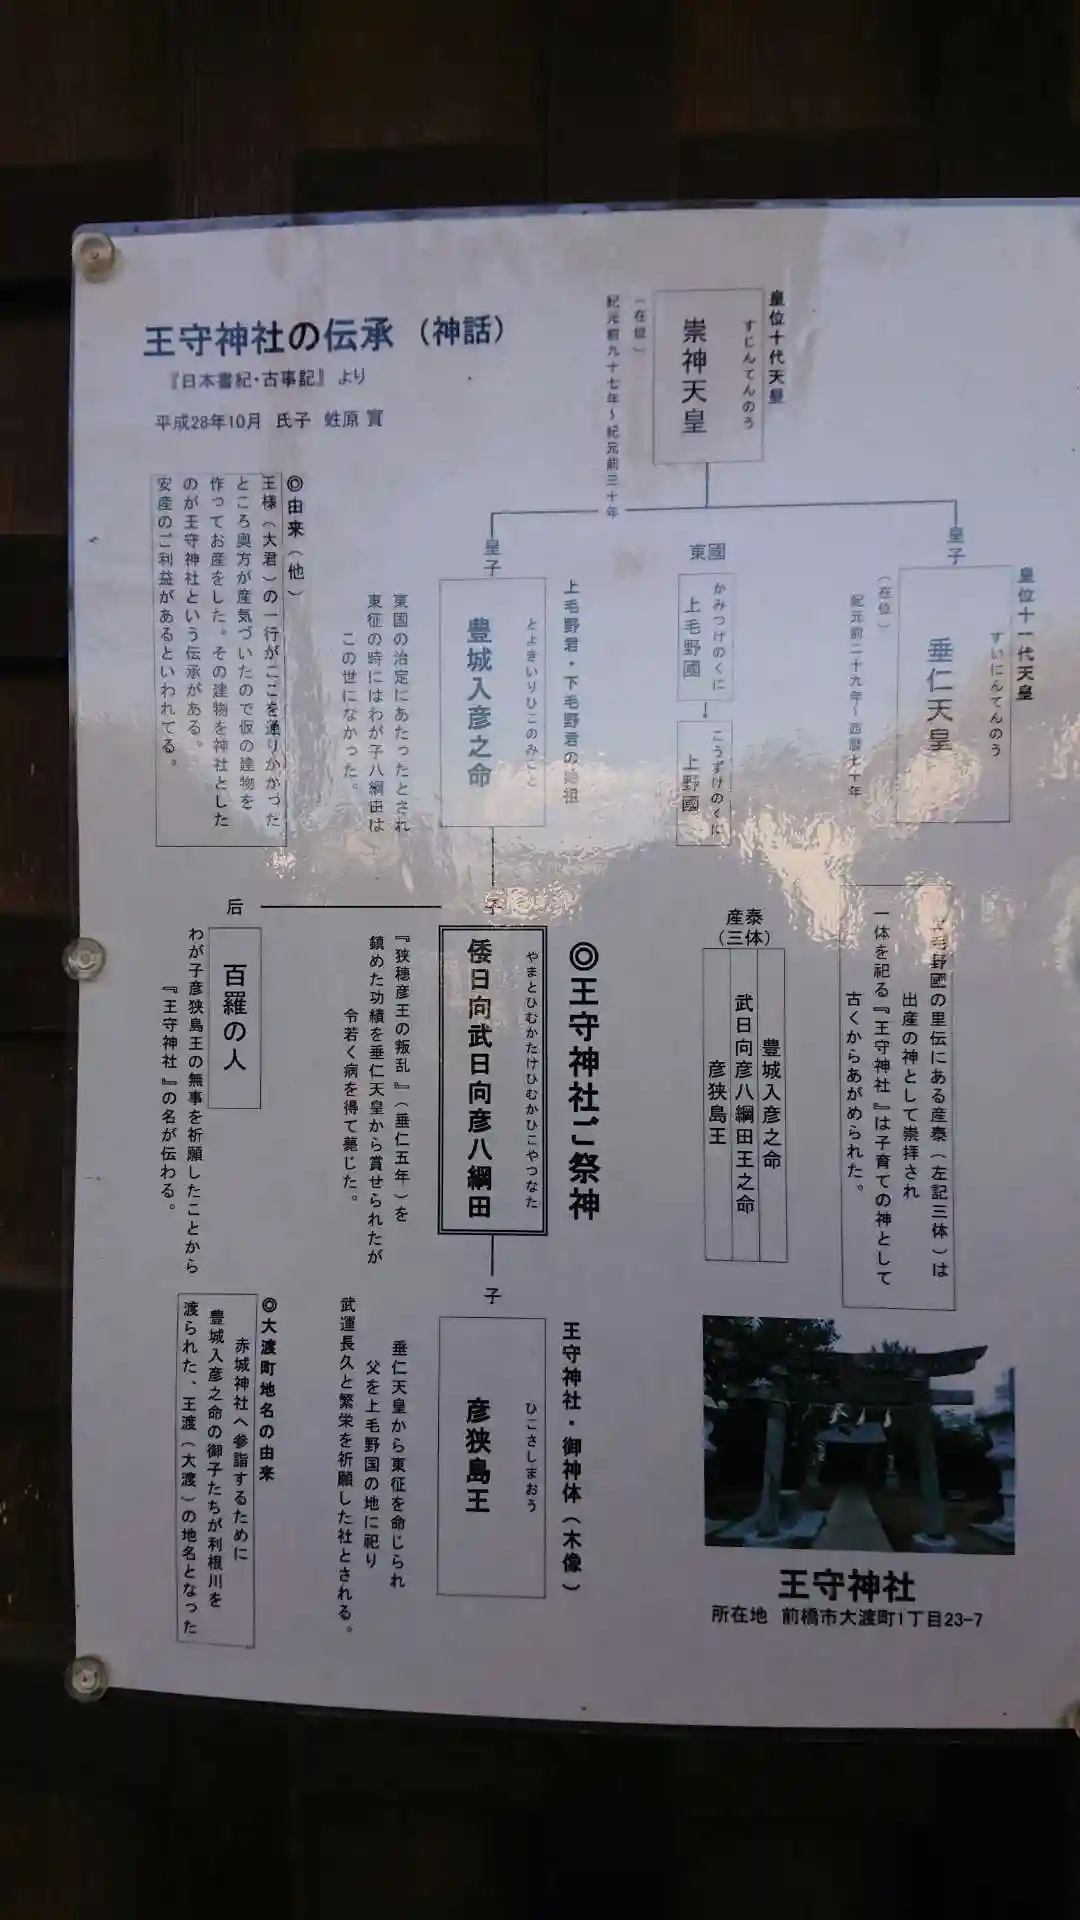 王守神社の伝承（神話）
『日本書紀・古事記』より
平成28年10月 氏子 甡原 實
皇位十代天皇
すじんてんのう
崇神天皇
（在位）
紀元前九十七年～紀元前三十年
皇子
皇位十一代天皇
すいにんてんのう
垂仁天皇
（在位）
紀元前二十九年～西暦七十年
東國
かみつけのくに
上毛野國
↓
こうずけのくに
上野國
皇子
上毛野君・下毛野君の始祖
とよきいりひこのみこと
豊城入彦之命
東国の治定にあたったとされ
東征の時にはわが子八綱田は
この世になかった。
◎由来（他）
王様（大君）の一行がここを通りかかった
ところ奥方が産気づいたので仮の建物を
作ってお産をした。その建物を神社とした
のが王守神社という伝承がある。
安産のご利益があるといわれてる。
毛野國の里伝にある産泰（左記三体）は
出産の神として崇拝され
一体を祀る『王守神社』は子育ての神として
古くからあがめられた。
産泰
（三体）
豊城入彦之命
武日向彦八綱田王之命
彦狭島王
◎王守神社ご祭神
子
やまとひむかたけひむかひこやつなた
倭日向武日向彦八綱田
『狭穂彦王の叛乱』（垂仁五年）を
鎮めた功績を垂仁天皇から賞せられたが
令若く病を得て薨じた。
后
百羅の人
わが子彦狭島王の無事を祈願したことから
『王守神社』の名が伝わる。
子
王守神社・御神体（木像）
ひこさしまおう
彦狭島王
垂仁天皇から東征を命じられ
父を上毛野国の地に祀り
武運長久と繁栄を祈願した社とされる。
◎大渡町地名の由来
赤城神社へ参詣するために
豊城入彦之命の御子たちが利根川を
渡られた、王渡（大渡）の地名となった
王守神社
所在地 前橋市大渡町1丁目23-7